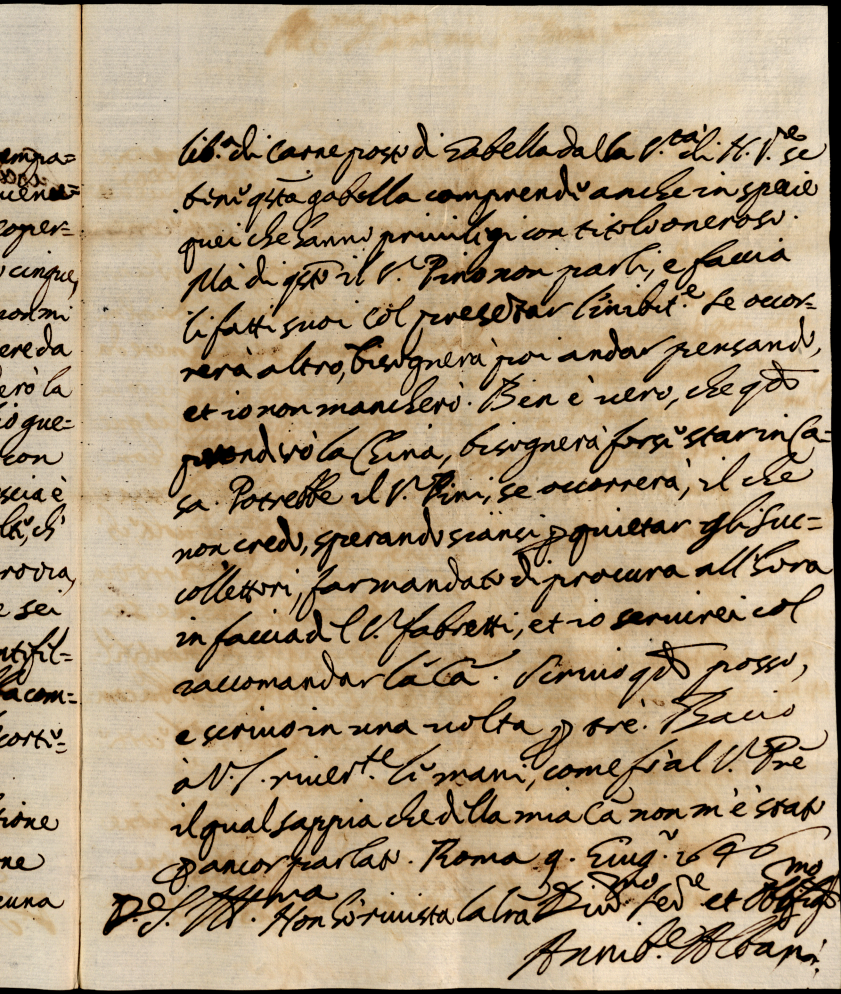 empa=
uene=
coper=
cinque,
non mi
ere da
erò la
gue=
con
scia è
rovia,
e sei
ntifil=
la com=
corti=
tione
ne
cuna
lib.ª di carne posto di Gabella dalla S.tà di N. S.re se
bene q.sta gabella comprende anche in specie
quei che hanno privilegi con titolo oneroso.
Mà di q.sto il S.r Pino non parli, e faccia
li fatti suoi col presentar l'inibit.e Se occor=
rerà altro, bisognerà poi andar pensando,
et io non mancherò. Ben è vero, che q.do
prenderò la China, bisognerà forse star in Ca=
sa. Potrebbe il S.r Pini, se occorrerà, il che
non credo, sperando sians quietar gli Suc=
collettori, far mandato di procura all'hora
in faccia del S.r Fabretti, et io servirei col
raccomandar la Cā. Scrivo q.do posso,
e scrivo in una volta ꝑ tre. Bacio
à V. S. river.te le mani, come fò al S.r Pr̄e
il qual sappia che della mia Cā non m'è stato
ꝑ ancor parlato. Roma 9. Giug.o 1696
Di V.S. Ill.ma Non hò rivista la l̄ra Div.mo Ser.re et Obblig.mo
Annib.e Albani